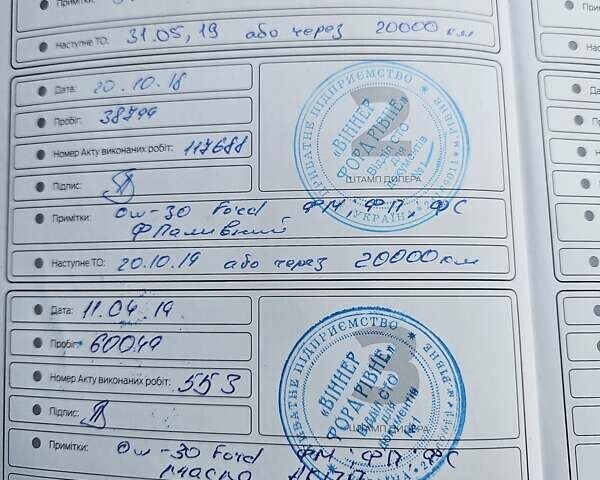 Примітки:
Наступне ТО: 31.05,19 або через 20000 км
Дата: 20.10.18
Пробіг: 38799
Номер Акту виконаних робіт: 117688
Підпис:
2
ПРИВАТНЕ ПІДПРИЄМСТВО
«ВІННЕР
ФОРД РІВНЕ»
Відділ СТО
Для
документів
№1
УКРАЇНА
м. РІВНЕ
ШТАМП ДИЛЕРА
Примітки: Ow-30 Ford ФМ; ФП; ФС
ФПаливний
Наступне ТО: 20.10.19 або через 20000 км
Дата: 11.04.19
Пробіг: 60049
Номер Акту виконаних робіт: 553
Підпис:
3
ПРИВАТНЕ ПІДПРИЄМСТВО
«ВІННЕР
ФОРД РІВНЕ»
Відділ СТО
Для
документів
№1
м. РІВНЕ
ШТАМП ДИЛЕРА
Примітки: Ow-30 Ford ФМ; ФП; ФС
масло АКПП